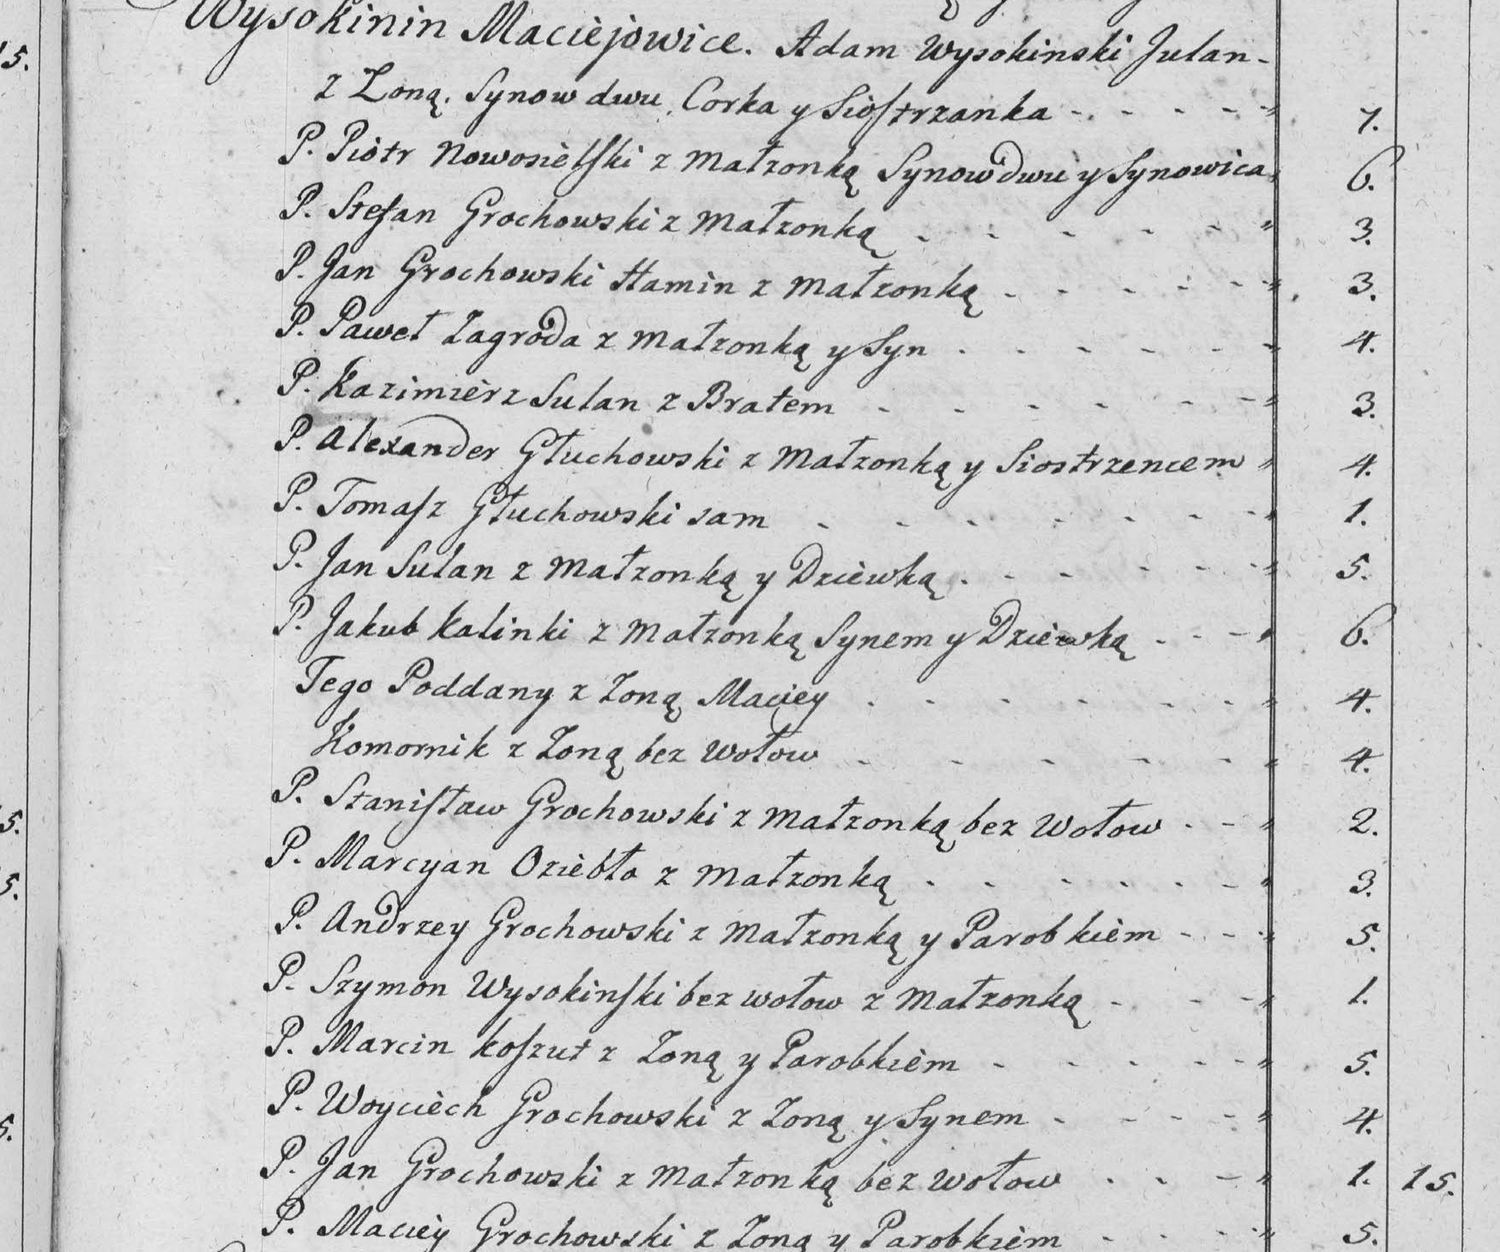 Wysokinin Maciejowice. Adam Wysokinski Julan-
z Zoną. Synow dwu, Corka y Siostrzanka - - - - - " 7.
P. Piotr Nowosielski z Małżonką Synow dwu y Synowica " 6.
P. Stefan Grochowski z Małżonką - - - - - " 3.
P. Jan Grochowski Hamin z Małżonką - - - - - " 3.
P. Paweł Zagroda z Małżonką y Syn - - - - - " 4.
P. Kazimierz Sulan z Bratem - - - - - " 3.
P. Alexander Głuchowski z Małżonką y Siostrzencem " 4.
P. Tomasz Głuchowski sam - - - - - - " 1.
P. Jan Sulan z Małżonką y Dziewką - - - - " 5.
P. Jakub Kalinki z Małżonką Synem y Dziewką - - - " 6.
Tego Poddany z Zoną Maciey - - - - - - " 4.
Komornik z Zoną bez Wołow - - - - - " 4.
P. Stanisław Grochowski z Małżonką bez Wołow - - " 2.
P. Marcyan Oziębło z Małżonką - - - - - " 3.
P. Andrzey Grochowski z Małżonką y Parobkiem - - - " 5.
P. Szymon Wysokinski bez wołow z Małżonką - - - " 1.
P. Marcin Koszut z Zoną y Parobkiem - - - - " 5.
P. Woyciech Grochowski z Zoną y Synem - - - - " 4.
P. Jan Grochowski z Małżonką bez Wołow - - - " 1. 15.
P. Maciey Grochowski z Zoną y Parobkiem - - - " 5.